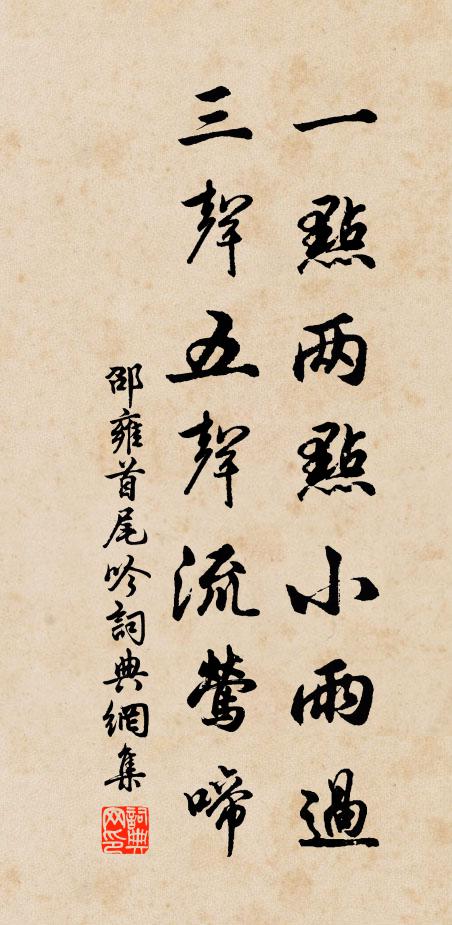 一點兩點小雨過
三聲五聲流鶯啼
邵雍首尾吟詞典網集
詞典網印